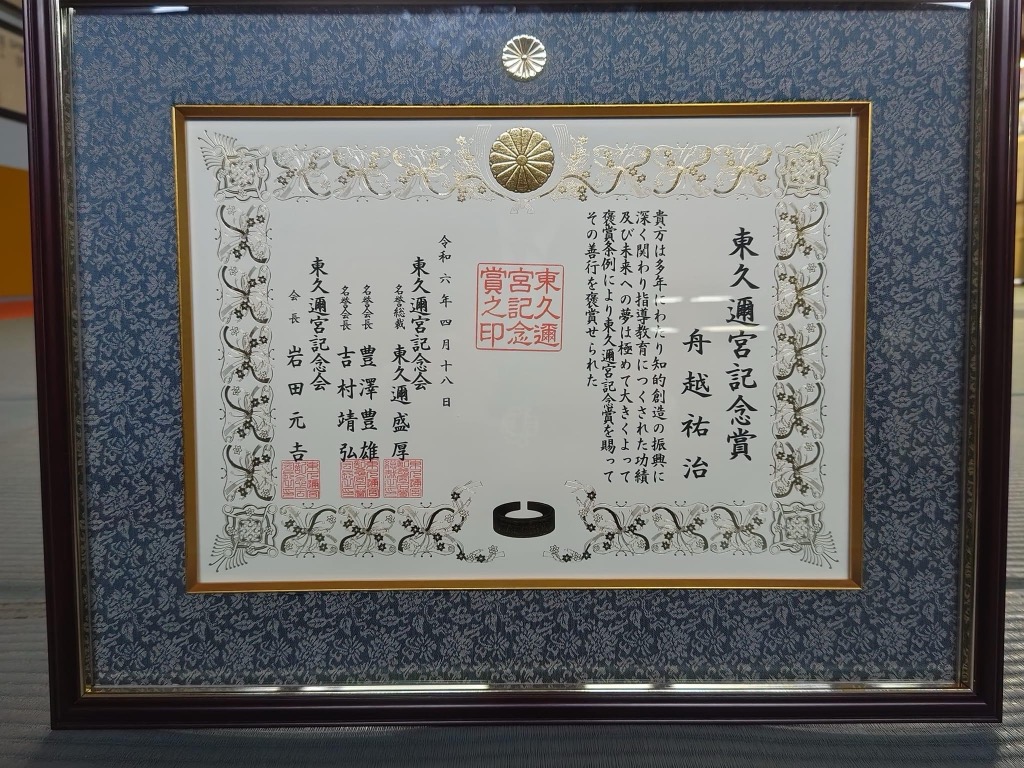 東久邇宮記念賞
舟越祐治
貴方は多年にわたり知的創造の振興に
深く関わり指導教育につくされた功績
及び未来への夢は極めて大きくよって
褒賞条例により東久邇宮記念賞を賜って
その善行を褒賞せられた
東久邇
宮記念
賞之印
令和六年四月十八日
東久邇宮記念会
名誉総裁 東久邇盛厚
名誉会長 豊澤豊雄
名誉会長 吉村靖弘
東久邇宮記念会
会長 岩田元吉